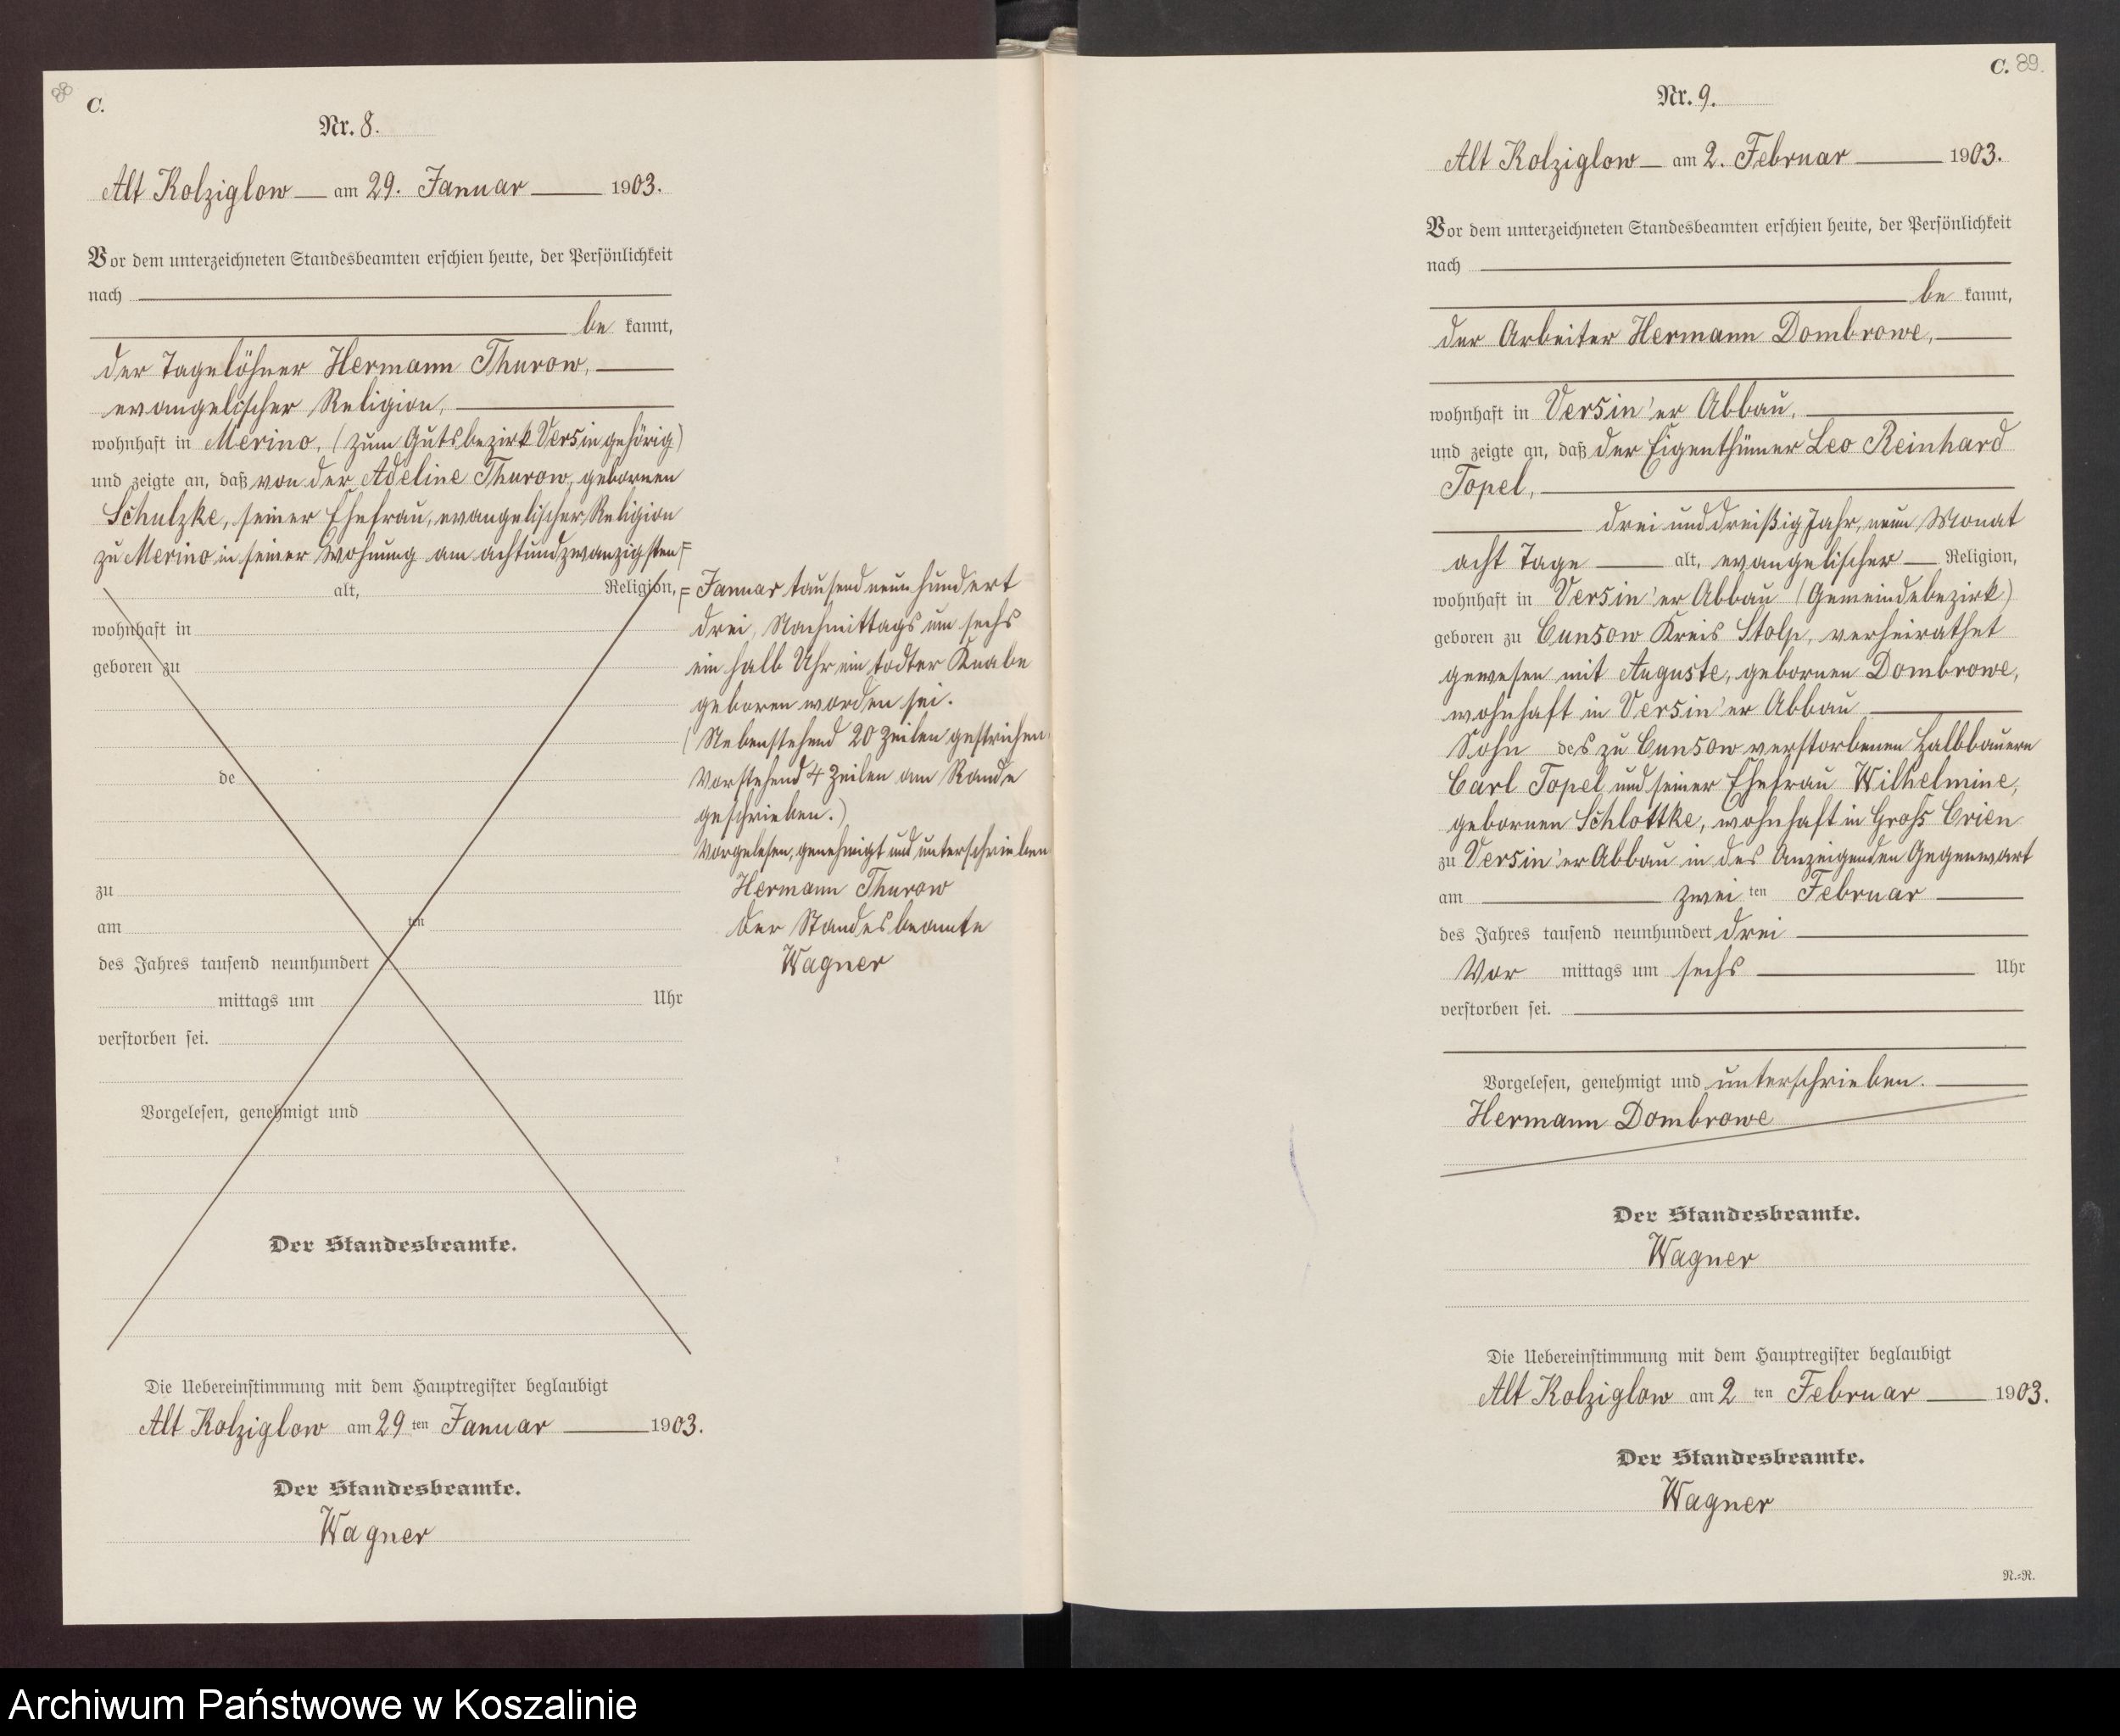 88
C.
Nr. 8.
Alt Kolziglow am 29. Januar 1903.
Vor dem unterzeichneten Standesbeamten erschien heute, der Persönlichkeit
nach
be kannt,
der Tagelöhner Hermann Thurow,
evangelischer Religion,
wohnhaft in Merino, (zum Gutsbezirk Versin gehörig)
und zeigte an, daß von der Adeline Thurow, gebornen
Schulzke, seiner Ehefrau, evangelischer Religion
zu Merino in seiner Wohnung am achtundzwanzigsten =
alt, Religion,
wohnhaft in
geboren zu
de
zu
am ten
des Jahres tausend neunhundert
mittags um Uhr
verstorben sei.
Vorgelesen, genehmigt und
Der Standesbeamte.
= Januar tausend neunhundert
drei, Nachmittags um sechs
ein halb Uhr ein todter Knabe
geboren worden sei.
(Nebenstehend 20 Zeilen gestrichen
Vorstehend 4 Zeilen am Rande
geschrieben.)
Vorgelesen, genehmigt und unterschrieben
Hermann Thurow
Der Standesbeamte
Wagner
Die Uebereinstimmung mit dem Hauptregister beglaubigt
Alt Kolziglow am 29 ten Januar 1903.
Der Standesbeamte.
Wagner
C. 89.
Nr. 9.
Alt Kolziglow am 2. Februar 1903.
Vor dem unterzeichneten Standesbeamten erschien heute, der Persönlichkeit
nach
be kannt,
der Arbeiter Hermann Dombrowe,
wohnhaft in Versin'er Abbau,
und zeigte an, daß der Eigenthümer Leo Reinhard
Topel,
drei und dreißig Jahr, neun Monat
acht Tage alt, evangelischer Religion,
wohnhaft in Versin'er Abbau (Gemeindebezirk)
geboren zu Cunsow Kreis Stolp, verheirathet
gewesen mit Auguste, gebornen Dombrowe,
wohnhaft in Versin'er Abbau
Sohn des zu Cunsow verstorbenen Halbbauern
Carl Topel und seiner Ehefrau Wilhelmine,
gebornen Schlottke, wohnhaft in Groß Crien
zu Versin'er Abbau in des Anzeigenden Gegenwart
am zwei ten Februar
des Jahres tausend neunhundert drei
Vor mittags um sechs Uhr
verstorben sei.
Vorgelesen, genehmigt und unterschrieben.
Hermann Dombrowe
Der Standesbeamte.
Wagner
Die Uebereinstimmung mit dem Hauptregister beglaubigt
Alt Kolziglow am 2 ten Februar 1903.
Der Standesbeamte.
Wagner
N.=N.
Archiwum Państwowe w Koszalinie